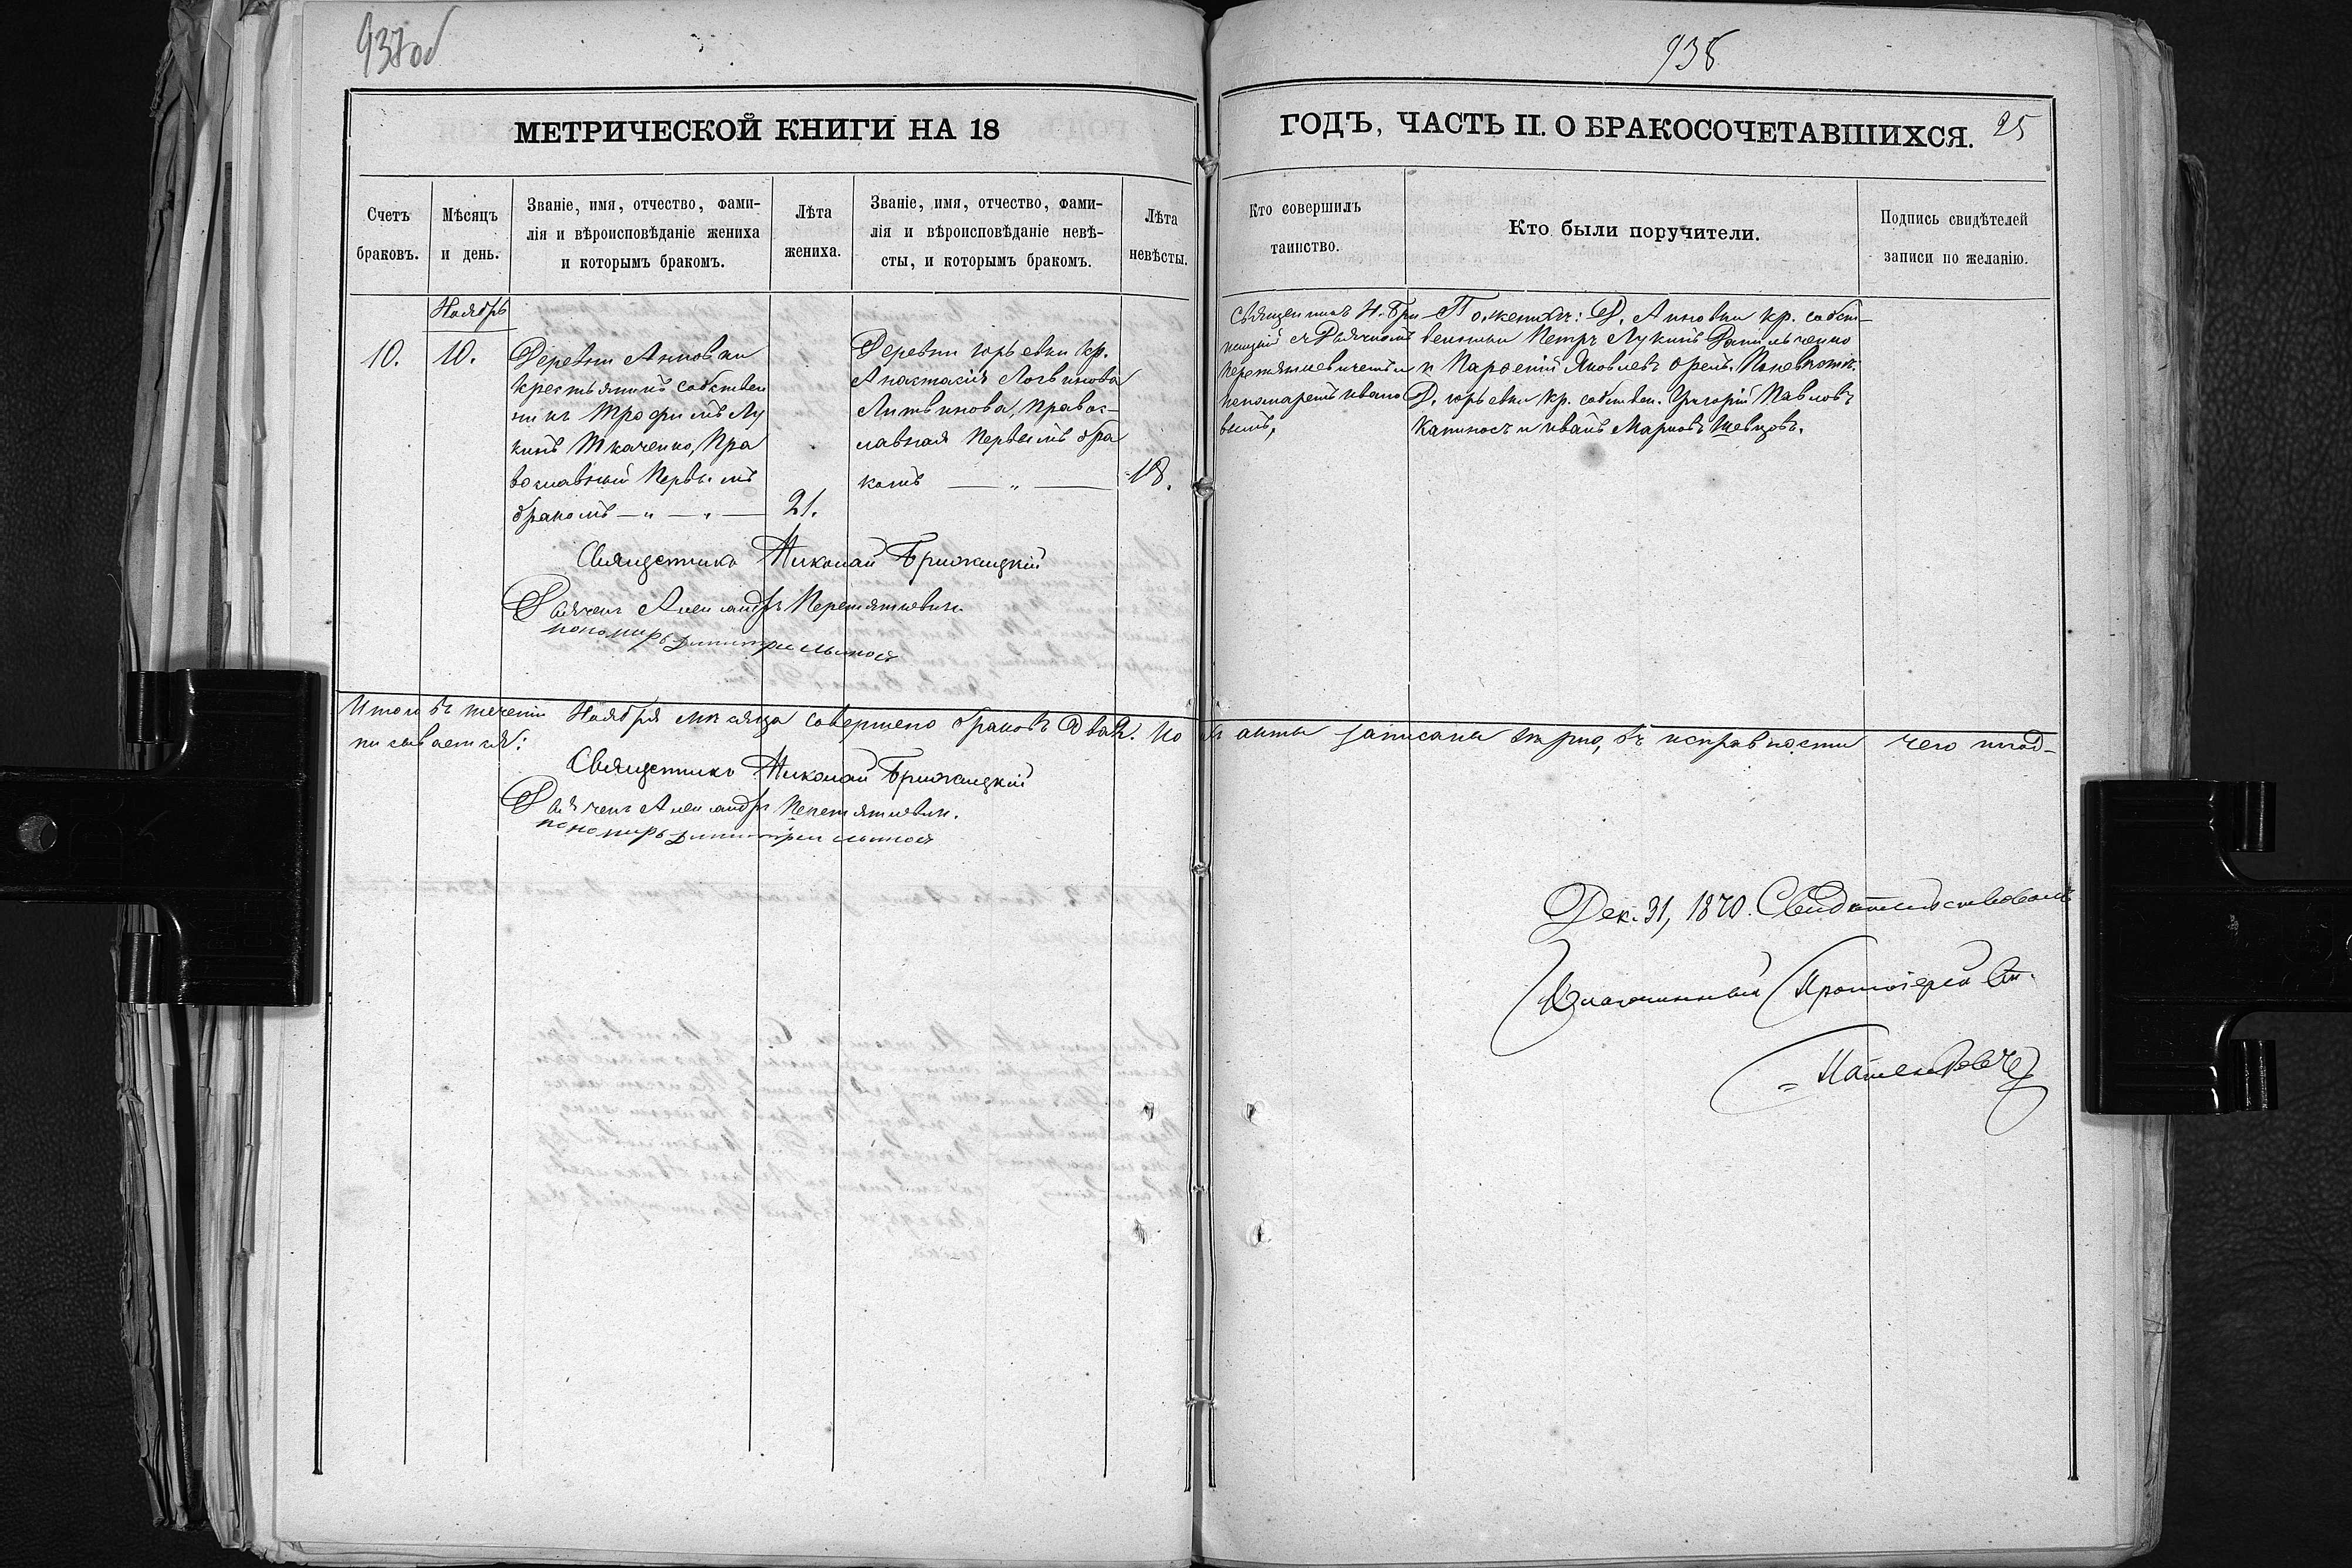 937об
938
МЕТРИЧЕСКОЙ КНИГИ НА 18
ГОДЪ, ЧАСТЬ II. О БРАКОСОЧЕТАВШИХСЯ.
25
Счетъ браковъ.
Мѣсяцъ и день.
Званіе, имя, отчество, фами-
лія и вѣроисповѣданіе жениха
и которымъ бракомъ.
Лѣта жениха.
Званіе, имя, отчество, фами-
лія и вѣроисповѣданіе невѣ-
сты, и которымъ бракомъ.
Лѣта невѣсты.
Кто совершилъ таинство.
Кто были поручители.
Подпись свидѣтелей записи по желанію.
Ноябрь
10.
10.
Деревни Анновки
крестьянинъ собствен
никъ Трофимъ Лу
кинъ Ткаченко, Пра
вославный Первымъ
бракомъ — „ — „ —
21.
Деревни Юрьевки Кр.
Анастасія Логвинова
Литвинова, Правос-
лавная Первымъ бра
комъ — „ —
18.
Священникъ Н. Бри-
жицкій съ Дьячкомъ
Перетятковичемъ и
пономаремъ Ивано
вымъ,
По женихѣ: Д. Анновки кр. собст-
венники Петръ Лукинъ Данильченко
и Парѳеній Яковлевъ Орелъ. По невѣстѣ.
Д. Юрьевки кр. собствен. Григорій Павловъ
Капиносъ и Иванъ Марковъ Шевцовъ.
Священникъ Николай Брижицкій
Дьячекъ Александръ Перетятковичъ
пономарь Димитрій
Итого въ теченіи Ноября мѣсяца совершено браковъ Два 2. Ко и акты записаны вѣрно, въ исправности чего и под-
писываемся:
Священникъ Николай Брижицкій
Дьячекъ Александръ Перетятковичъ.
пономарь Димитрій
Дек. 31, 1870. Свидѣтельствовалъ
Благочинный Протоіерей